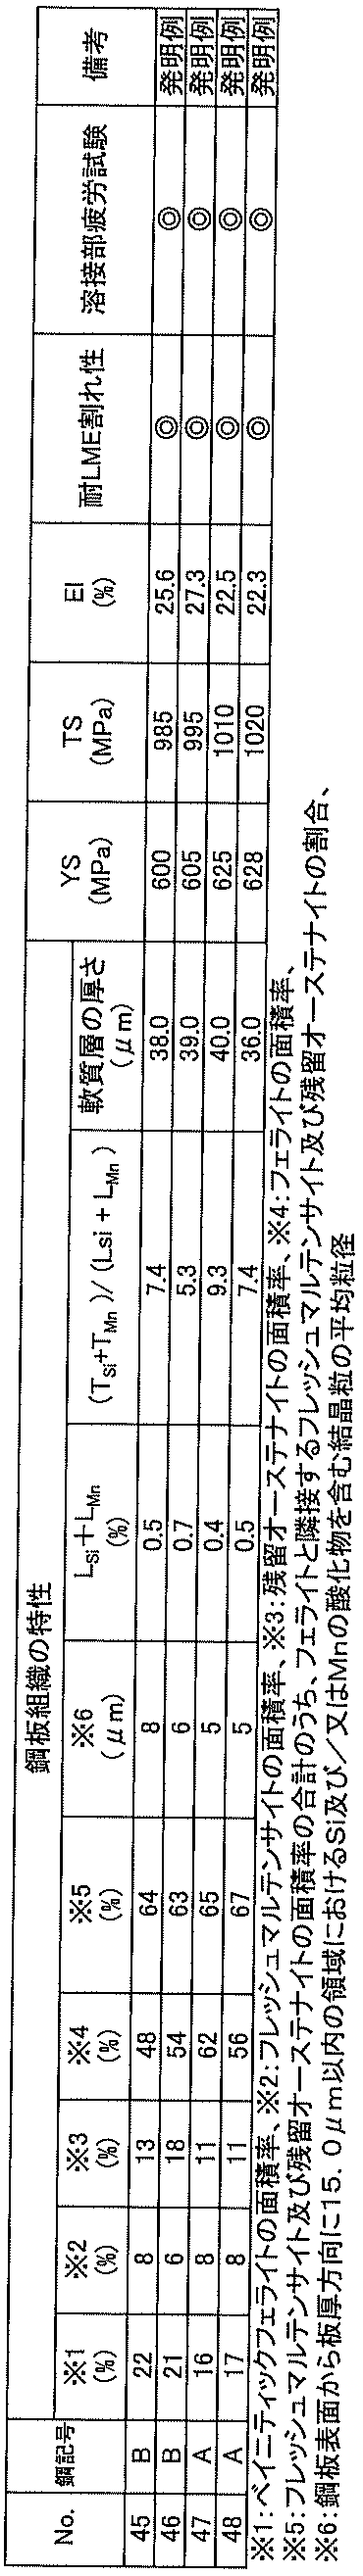 No. 鋼記号 鋼板組織の特性 YS (MPa) TS (MPa) El (%) 耐LME割れ性 溶接部疲労試験 備考
※1 (%) ※2 (%) ※3 (%) ※4 (%) ※5 (%) ※6 (μm) LSi+LMn (%) (TSi+TMn)/(Lsi + LMn) 軟質層の厚さ (μm)
45 B 22 8 13 48 64 8 0.5 7.4 38.0 600 985 25.6 ◎ ◎ 発明例
46 B 21 6 18 54 63 6 0.7 5.3 39.0 605 995 27.3 ◎ ◎ 発明例
47 A 16 8 11 62 65 5 0.4 9.3 40.0 625 1010 22.5 ◎ ◎ 発明例
48 A 17 8 11 56 67 5 0.5 7.4 36.0 628 1020 22.3 ◎ ◎ 発明例
※1:ベイニティックフェライトの面積率、※2:フレッシュマルテンサイトの面積率、※3:残留オーステナイトの面積率、※4:フェライトの面積率、
※5:フレッシュマルテンサイト及び残留オーステナイトの面積率の合計のうち、フェライトと隣接するフレッシュマルテンサイト及び残留オーステナイトの割合、
※6:鋼板表面から板厚方向に15.0μm以内の領域におけるSi及び/又はMnの酸化物を含む結晶粒の平均粒径